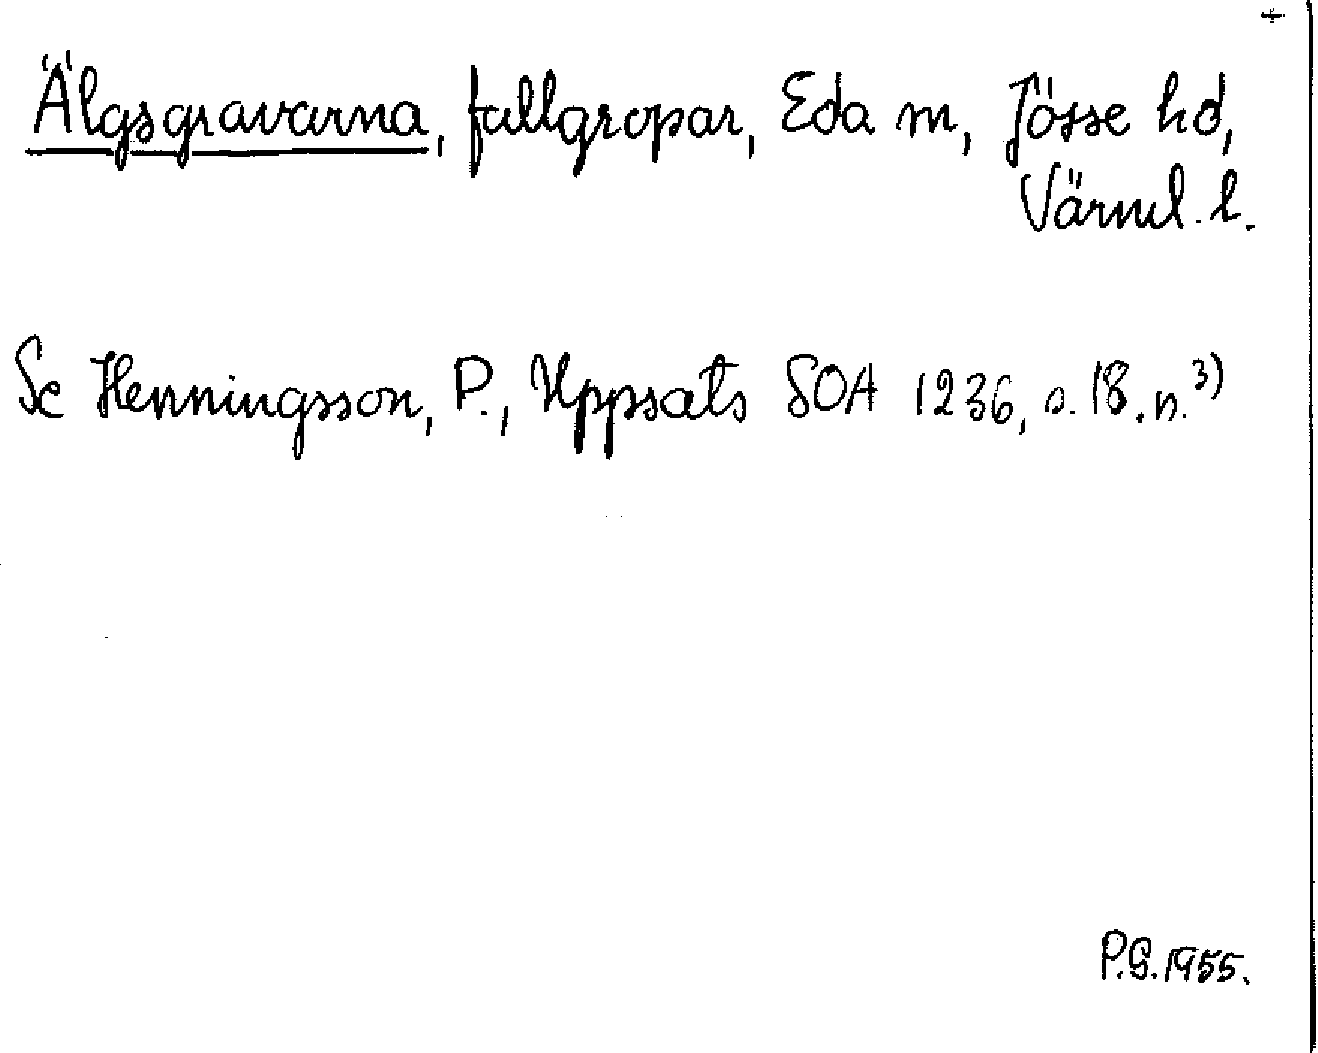 Älgsgravarna, fallgropar, Eda sn, Jösse hd,
Värml. l.
Se Henningsson, P., Uppsats SOA 1236, s. 18. n. 3)
P.G. 1955.